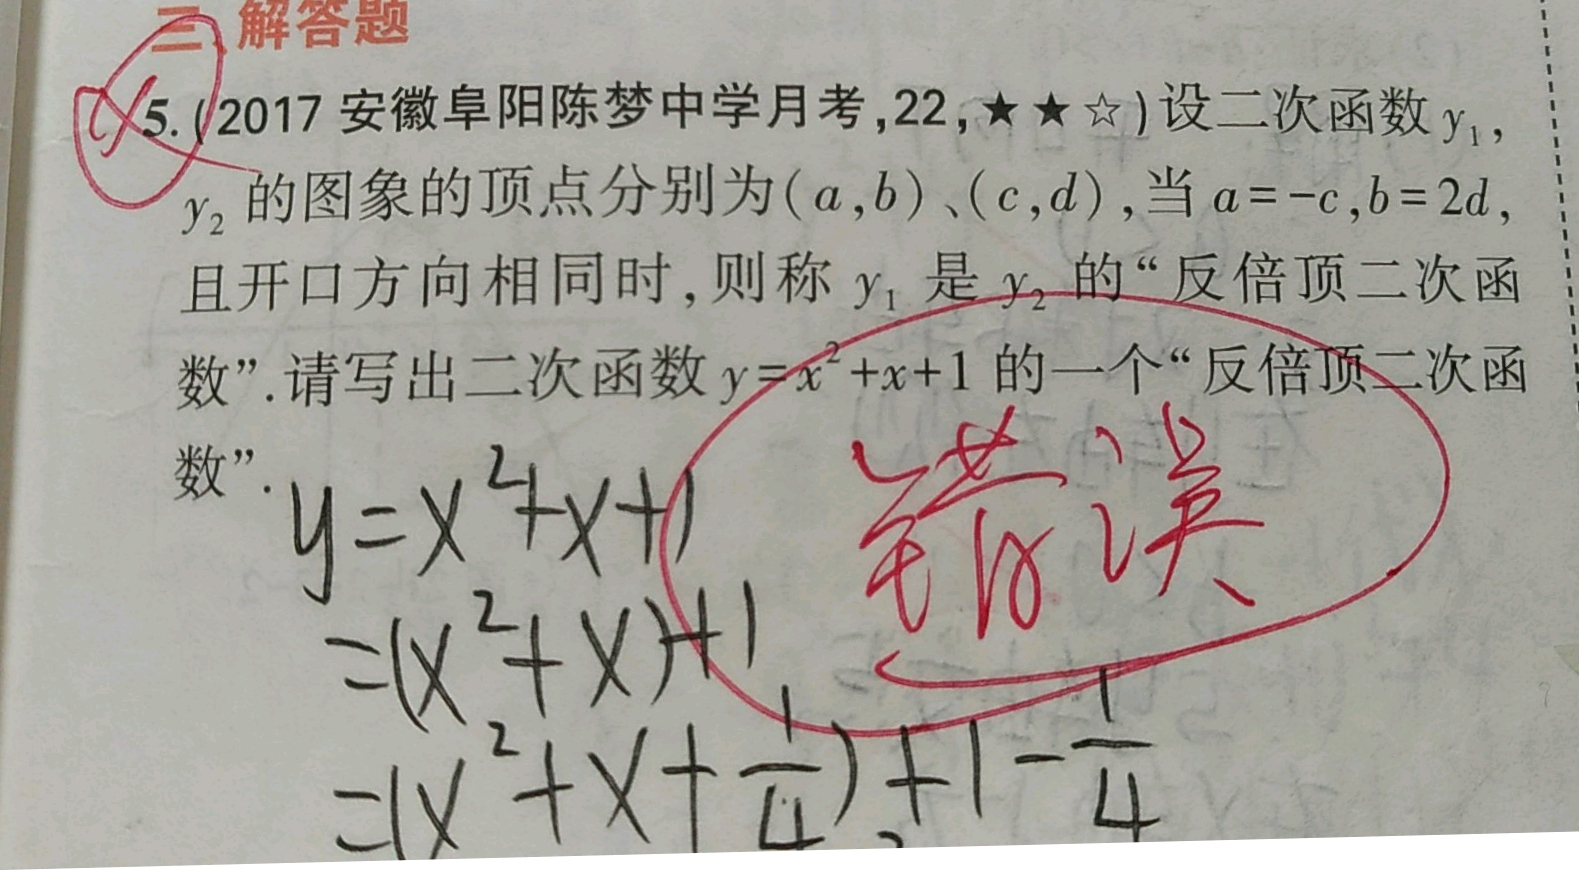 三、解答题
5.(2017安徽阜阳陈梦中学月考,22,★★☆)设二次函数y₁,
y₂的图象的顶点分别为(a,b)、(c,d),当a=-c,b=2d,
且开口方向相同时,则称y₁是y₂的“反倍顶二次函
数”.请写出二次函数y=x²+x+1的一个“反倍顶二次函
数”.
错误
y=x²+x+1
=(x²+x)+1
=(x²+x+1/4)+1-1/4